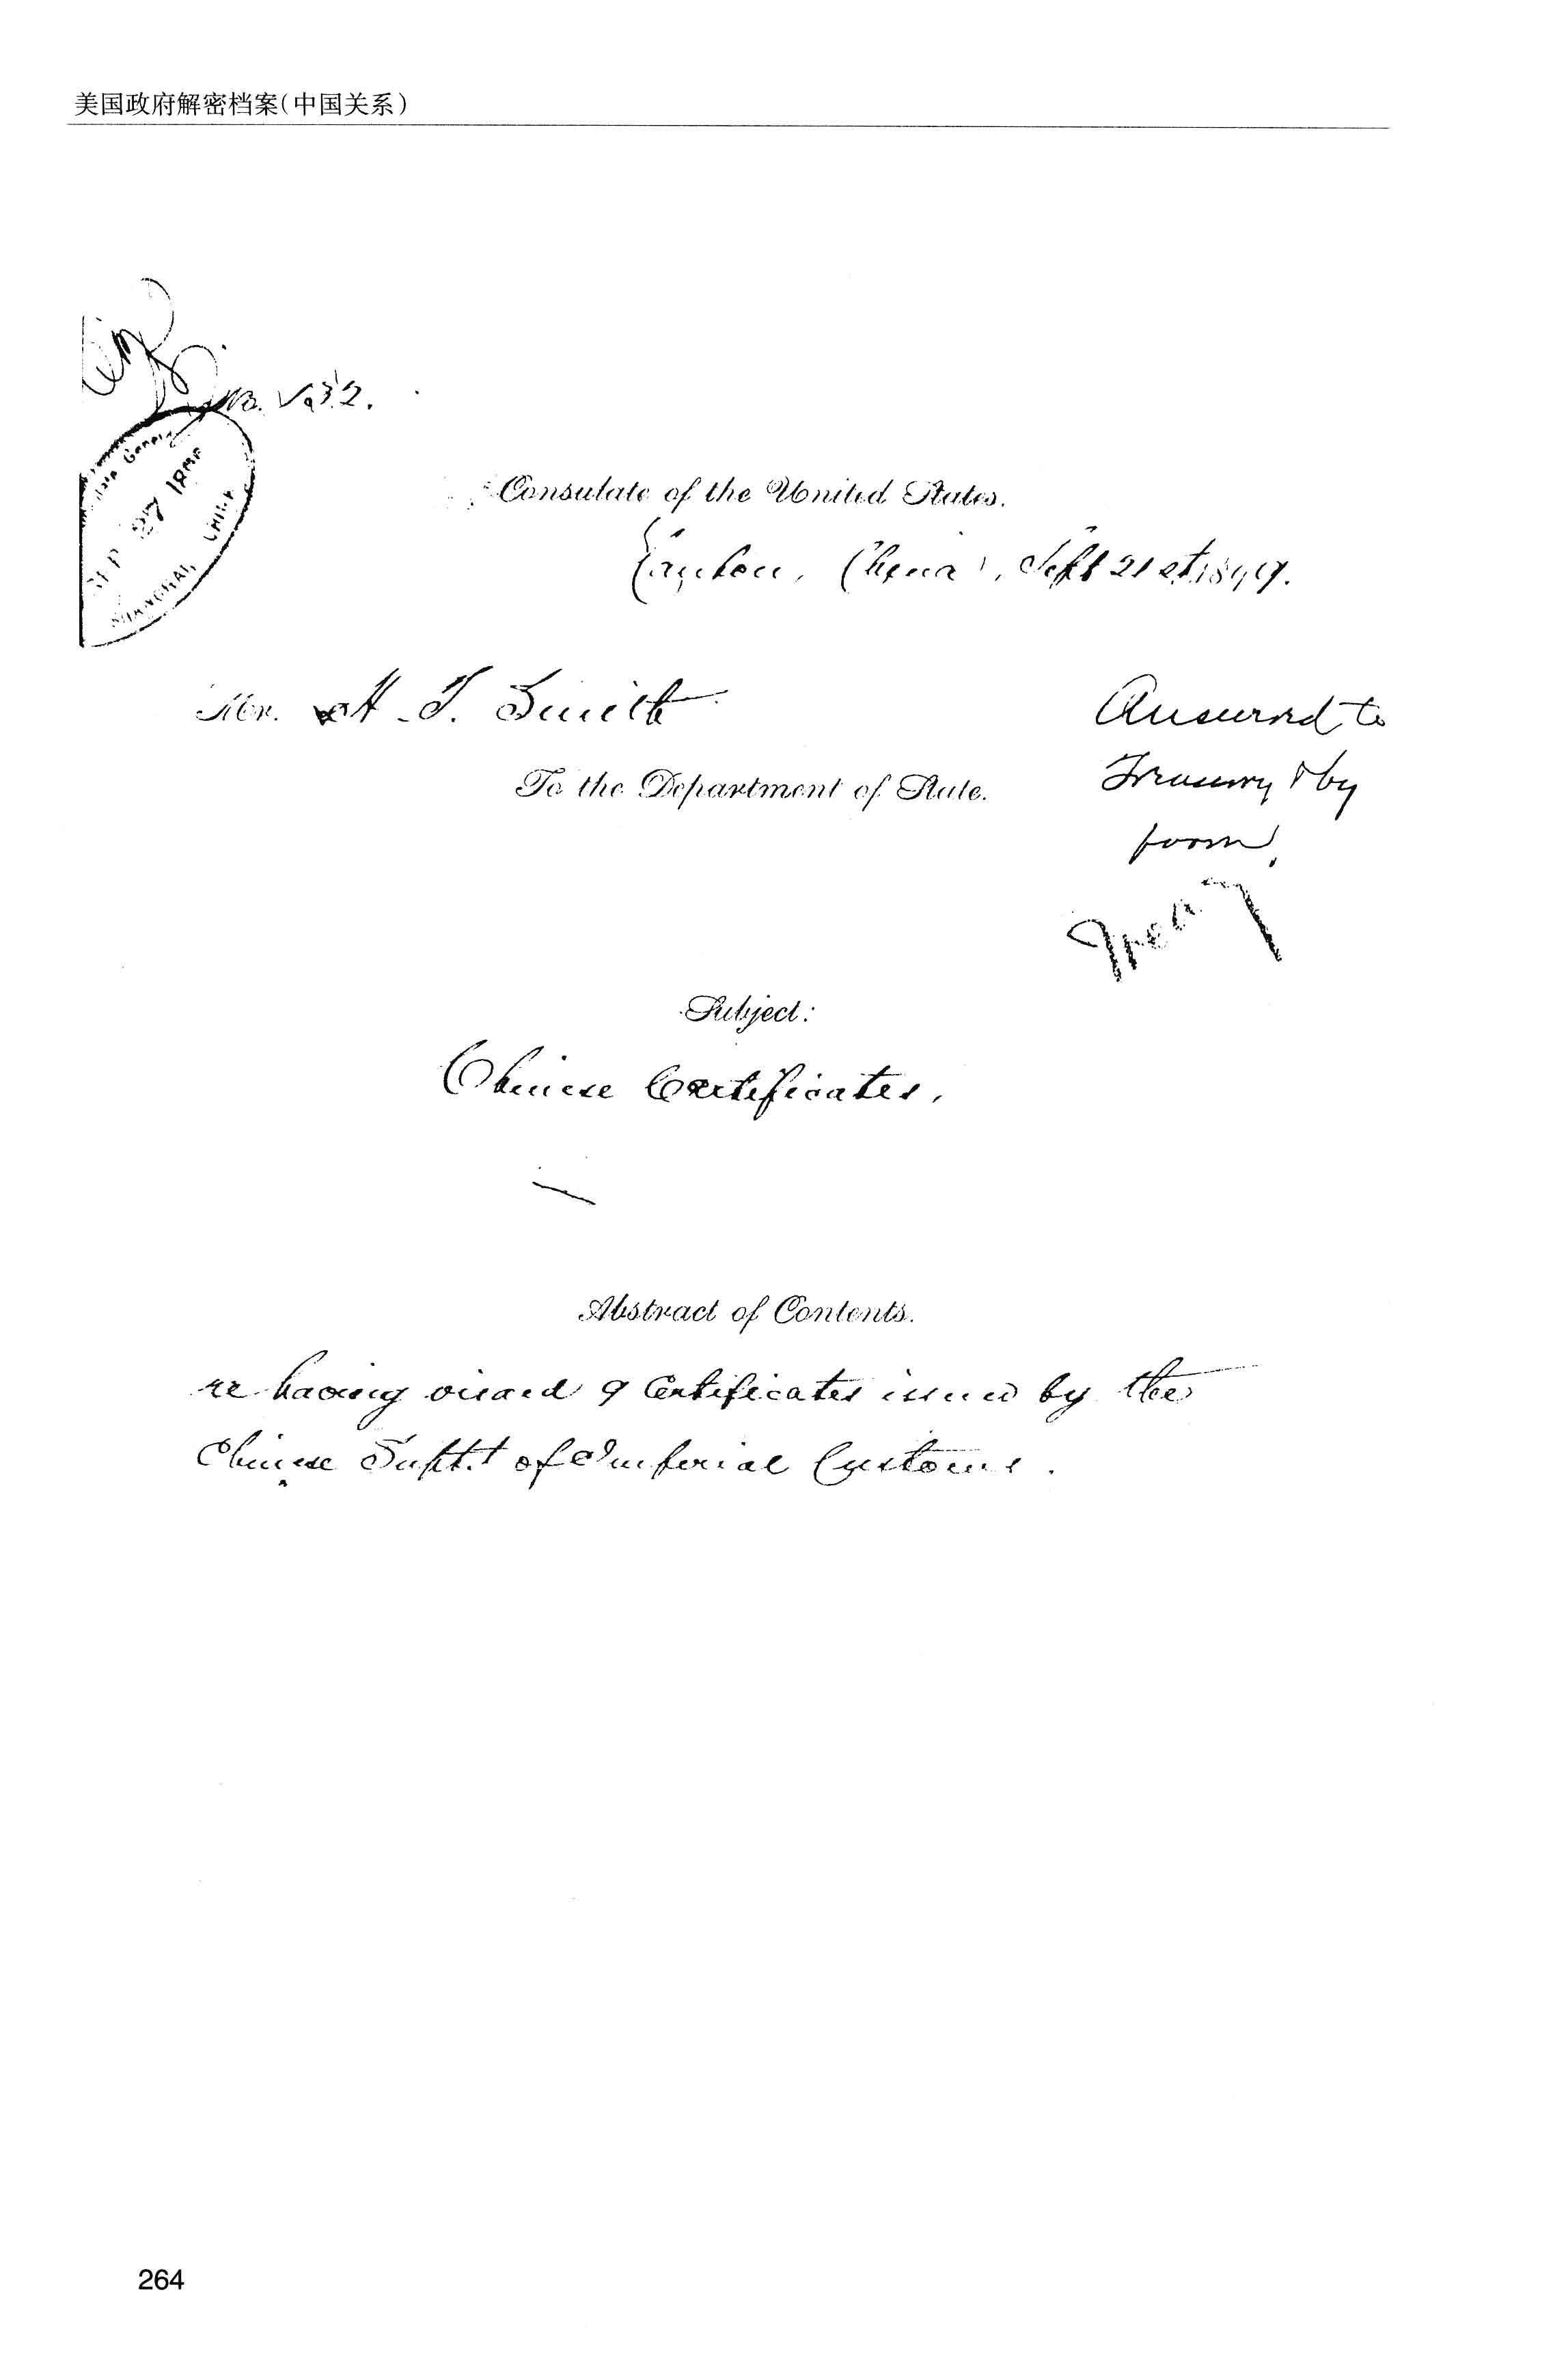 美国政府解密档案(中国关系)
No. 32.
SEP 27
SHANGHAI, CHINA
Consulate of the United States.
Canton, China, Sept 21st,
Mr. H. T. Smith
To the Department of State.
Answered to
Treasury & by
form.
Treas
Subject:
Chinese Certificates.
Abstract of Contents.
re having visaed 9 Certificates issued by the
Chinese Supt. of Imperial Customs.
264